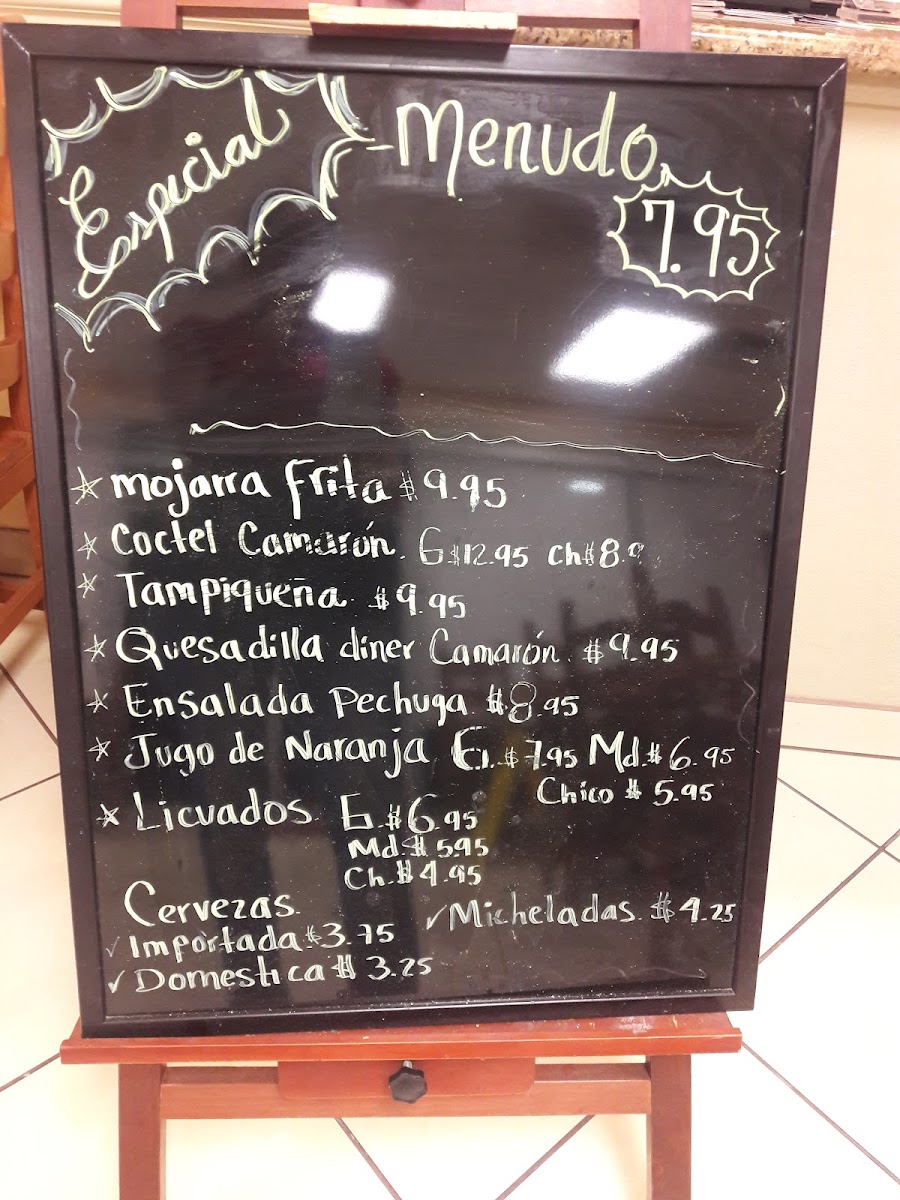 Especial
- Menudo
7.95
mojarra frita $9.95
Coctel Camarón. G $12.95 Ch $8.9
Tampiqueña. $9.95
Quesadilla diner Camarón. $9.95
Ensalada Pechuga $8.95
Jugo de Naranja G. $7.95 Md. $6.95
Chico $5.95
Licuados. G. $6.95
Md. $5.95
Ch. $4.95
Cervezas.
✓ Micheladas. $4.25
✓ Importada $3.75
✓ Domestica $3.25